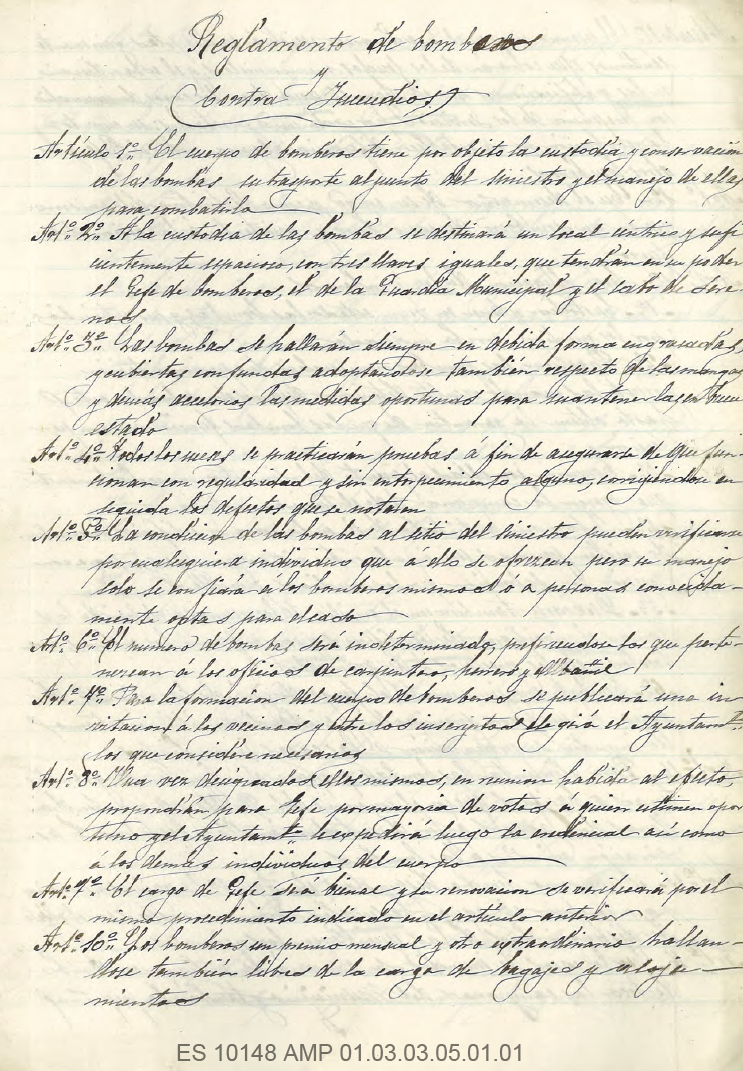 Reglamento de bomberos
y
Contra Incendios.
Artículo 1º El cuerpo de bomberos tiene por objeto la custodia y conservación
de las bombas su trasporte al punto del siniestro y el manejo de ellas
para combatirlo
Artº 2º A la custodia de las bombas se destinará un local céntrico y sufi-
cientemente espacioso, con tres llaves iguales, que tendrán en su poder
el Gefe de bomberos, el de la Guardia Municipal y el cabo de Sere-
nos
Artº 3º Las bombas se hallarán siempre en debida forma engrasadas,
y cubiertas con fundas adoptandose también respecto de las mangas
y demás accesorios las medidas oportunas para mantenerlas en buen
estado
Artº 4º Todos los meses se practicarán pruebas á fin de asegurarse de que fun-
cionan con regularidad y sin entorpecimiento alguno, corrijiendose en
seguida los defectos que se notaren
Artº 5º La conducion de las bombas al sitio del siniestro pueden verificarse
por cualesquiera individuo que á ello se ofrezcan pero su manejo
solo se confiará á los bomberos mismos ó á personas conocida-
mente aptas para el caso
Artº 6º El numero de bombas será indeterminado, prefiriendose los que perte-
nezcan á los oficios de carpintero, herrero y Albañil
Artº 7º Para la formacion del cuerpo de bomberos se publicará una in-
vitacion á los vecinos y entre los inscriptos elegirá el Ayuntamtº
los que considere necesarios
Artº 8º Una vez designados ellos mismos, en reunion habida al efecto,
propondrán para Gefe por mayoria de votos á quien estimen opor
tuno y el Ayuntamtº le expedirá luego la credencial así como
a los demas individuos del cuerpo
Artº 9º El cargo de Gefe será bienal y su renovacion se verificará por el
mismo procedimiento indicado en el artículo anterior
Artº 10º Los bomberos un premio mensual y otro extraordinario hallan-
dose también libres de la carga de bagajes y aloja-
mientos
ES 10148 AMP 01.03.03.05.01.01